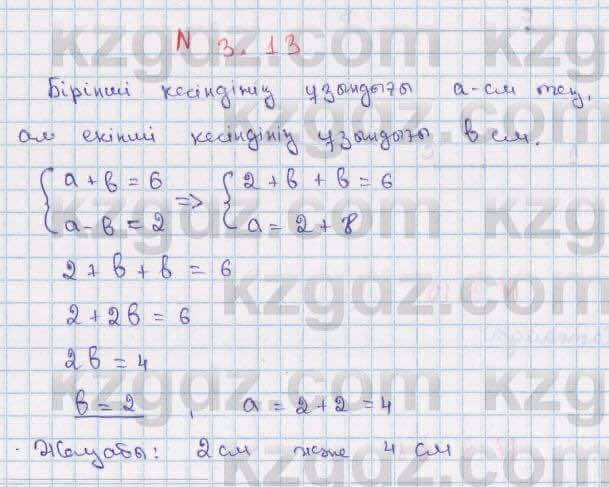 N 3.13
Бірінші кесіндінің ұзындығы a-см тең,
ал екінші кесіндінің ұзындығы b см.
{ a + b = 6 => { 2 + b + b = 6
a - b = 2 a = 2 + b
2 + b + b = 6
2 + 2b = 6
2b = 4
b = 2 , a = 2 + 2 = 4
Жауабы: 2 см және 4 см
kzgdz.com